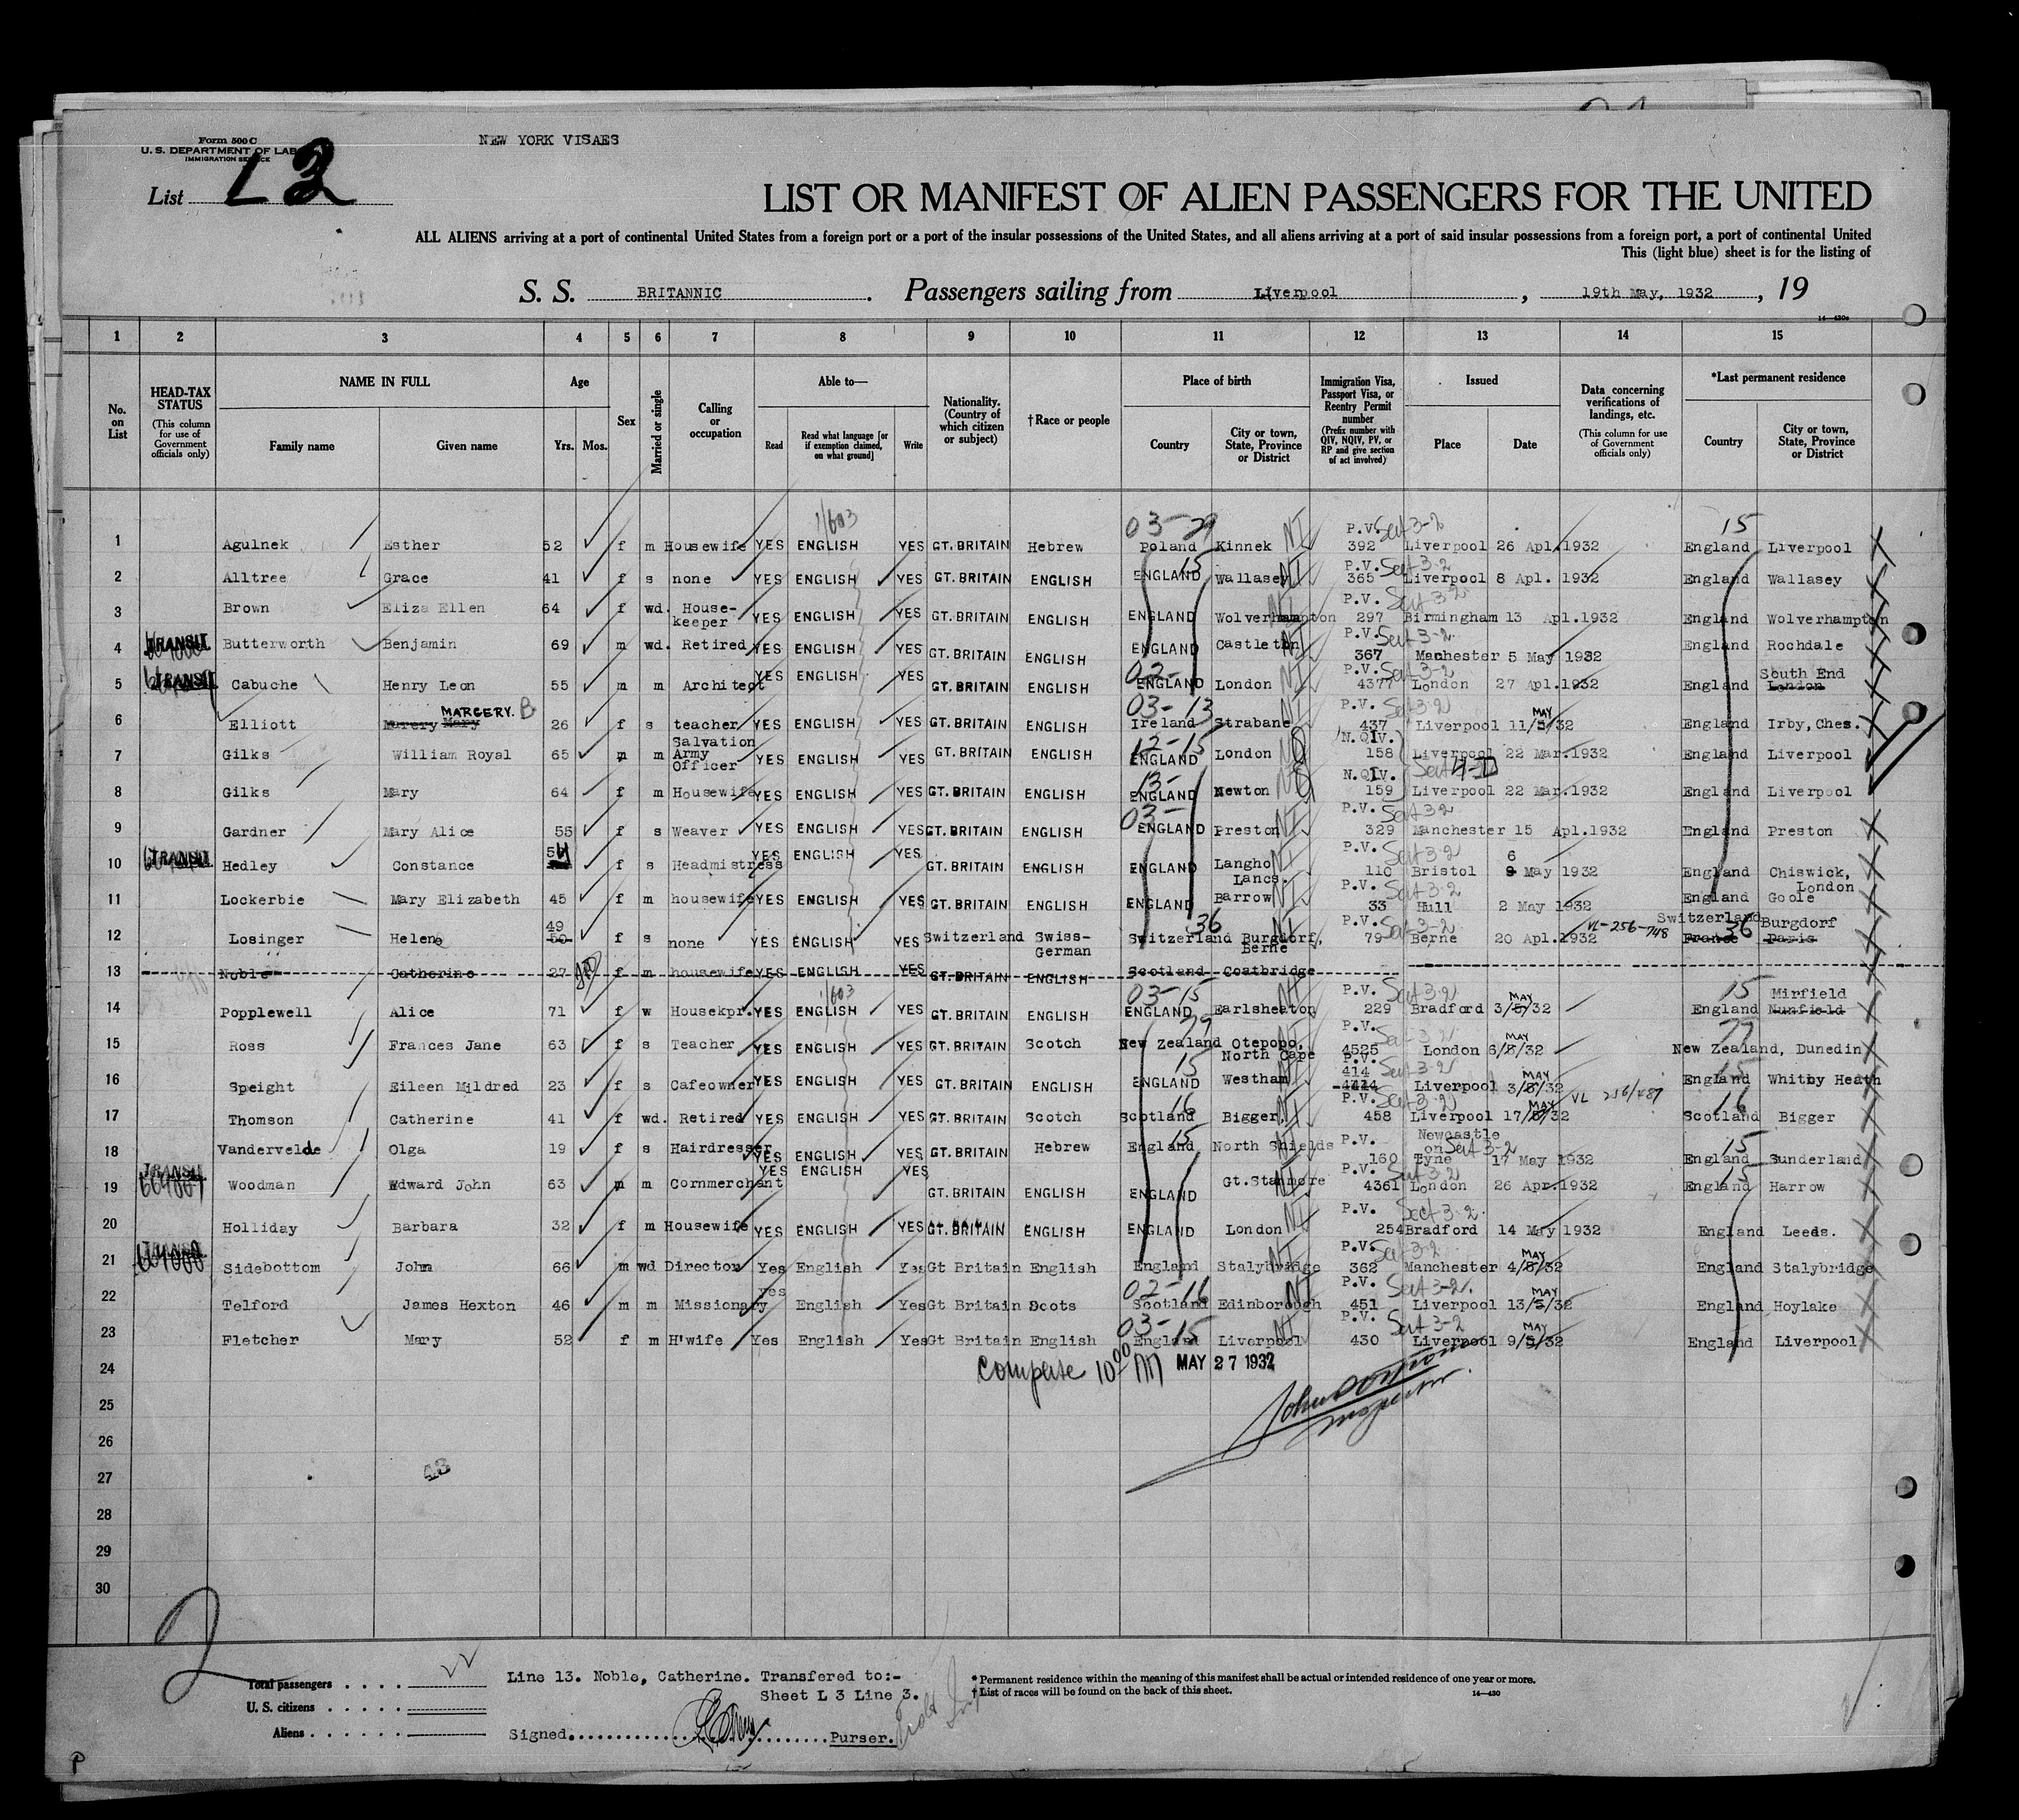 Form 500 C
U. S. DEPARTMENT OF LAB
IMMIGRATION SERVICE
NEW YORK VISAES
List L 2
LIST OR MANIFEST OF ALIEN PASSENGERS FOR THE UNITED
ALL ALIENS arriving at a port of continental United States from a foreign port or a port of the insular possessions of the United States, and all aliens arriving at a port of said insular possessions from a foreign port, a port of continental United
This (light blue) sheet is for the listing of
S. S. BRITANNIC. Passengers sailing from Liverpool, 19th May, 1932, 19
14—430c
1 2 3 4 5 6 7 8 9 10 11 12 13 14 15
No. on List
HEAD-TAX STATUS (This column for use of Government officials only)
NAME IN FULL Family name Given name
Age Yrs. Mos.
Sex
Married or single
Calling or occupation
Able to— Read Read what language [or if exemption claimed, on what ground] Write
Nationality. (Country of which citizen or subject)
†Race or people
Place of birth Country City or town, State, Province or District
Immigration Visa, Passport Visa, or Reentry Permit number (Prefix number with QIV, NQIV, PV, or RP and give section of act involved)
Issued Place Date
Data concerning verifications of landings, etc. (This column for use of Government officials only)
*Last permanent residence Country City or town, State, Province or District
1/603 03-29 NI Sect 3-2 15
1 Agulnek Esther 52 f m Housewife YES ENGLISH YES GT. BRITAIN Hebrew Poland Kinnek P.V. 392 Liverpool 26 Apl. 1932 England Liverpool
15 NI Sect 3-2
2 Alltree Grace 41 f s none YES ENGLISH YES GT. BRITAIN ENGLISH ENGLAND Wallasey P.V. 365 Liverpool 8 Apl. 1932 England Wallasey
3 Brown Eliza Ellen 64 f wd. House-keeper YES ENGLISH YES GT. BRITAIN ENGLISH ENGLAND Wolverhampton P.V. 297 Birmingham 13 Apl. 1932 England Wolverhampton
4 TRANSIT Butterworth Benjamin 69 m wd. Retired YES ENGLISH YES GT. BRITAIN ENGLISH ENGLAND Castleton P.V. 367 Manchester 5 May 1932 England Rochdale
02-
5 TRANSIT Cabuche Henry Leon 55 m m Architect YES ENGLISH YES GT. BRITAIN ENGLISH ENGLAND London P.V. 4377 London 27 Apl. 1932 England South End London
03-13
6 Elliott Mercry Mary MARGERY. B 26 f s teacher YES ENGLISH YES GT. BRITAIN ENGLISH Ireland Strabane P.V. 437 Liverpool 11/5/32 MAY England Irby, Ches.
12-15
7 Gilks William Royal 65 m m Salvation Army Officer YES ENGLISH YES GT. BRITAIN ENGLISH ENGLAND London N.QIV. 158 Liverpool 22 Mar. 1932 England Liverpool
13-
8 Gilks Mary 64 f m Housewife YES ENGLISH YES GT. BRITAIN ENGLISH ENGLAND Newton N.QIV. 159 Liverpool 22 Mar. 1932 England Liverpool
03-
9 Gardner Mary Alice 55 f s Weaver YES ENGLISH YES GT. BRITAIN ENGLISH ENGLAND Preston P.V. 329 Manchester 15 Apl. 1932 England Preston
10 TRANSIT Hedley Constance 54 f s Headmistress YES ENGLISH YES GT. BRITAIN ENGLISH ENGLAND Langho Lancs. P.V. 110 Bristol 6 9 May 1932 England Chiswick, London
11 Lockerbie Mary Elizabeth 45 f m housewife YES ENGLISH YES GT. BRITAIN ENGLISH ENGLAND Barrow P.V. 33 Hull 2 May 1932 England Goole
36 VL-256-748 36
12 Losinger Helene 49 50 f s none YES ENGLISH YES Switzerland Swiss-German Switzerland Burgdorf, Berne P.V. 79 Berne 20 Apl. 1932 Switzerland France Burgdorf Paris
13 Noble Catherine 27 f m housewife YES ENGLISH YES GT. BRITAIN ENGLISH Scotland Coatbridge
1/603 03-15 15
14 Popplewell Alice 71 f w Housekpr. YES ENGLISH YES GT. BRITAIN ENGLISH ENGLAND Earlsheaton P.V. 229 Bradford 3/5/32 MAY England Mirfield Munfield
77
15 Ross Frances Jane 63 f s Teacher YES ENGLISH YES GT. BRITAIN Scotch New Zealand Otepopo, North Cape P.V. 4525 London 6/5/32 MAY New Zealand, Dunedin
15 15
16 Speight Eileen Mildred 23 f s Cafeowner YES ENGLISH YES GT. BRITAIN ENGLISH ENGLAND Westham P.V. 414 Liverpool 3/5/32 MAY England Whitby Heath
16 VL 256/487 16
17 Thomson Catherine 41 f wd. Retired YES ENGLISH YES GT. BRITAIN Scotch Scotland Bigger, P.V. 458 Liverpool 17/5/32 MAY Scotland Bigger
15 15
18 Vandervelde Olga 19 f s Hairdresser YES ENGLISH YES GT. BRITAIN Hebrew England North Shields P.V. 160 Newcastle on Tyne 17 May 1932 England Sunderland
15
19 TRANSIT Woodman Edward John 63 m m Cornmerchant YES ENGLISH YES GT. BRITAIN ENGLISH ENGLAND Gt. Stanmore P.V. 4361 London 26 Apr. 1932 England Harrow
20 Holliday Barbara 32 f m Housewife YES ENGLISH YES GT. BRITAIN ENGLISH ENGLAND London P.V. 254 Bradford 14 May 1932 England Leeds.
21 TRANSIT Sidebottom John 66 m wd Director Yes English Yes Gt Britain English England Stalybridge P.V. 362 Manchester 4/5/32 MAY England Stalybridge
02-16
22 Telford James Hexton 46 m m Missionary yes English Yes Gt Britain Scots Scotland Edinborough P.V. 451 Liverpool 13/5/32 MAY England Hoylake
03-15
23 Fletcher Mary 52 f m H'wife Yes English Yes Gt Britain English England Liverpool P.V. 430 Liverpool 9/5/32 MAY England Liverpool
24 MAY 27 1932
25
26 Inspector
27 43
28
29
30
2
Total passengers
U. S. citizens
Aliens
Line 13. Noble, Catherine. Transfered to:-
Sheet L 3 Line 3.
Signed Purser.
* Permanent residence within the meaning of this manifest shall be actual or intended residence of one year or more.
† List of races will be found on the back of this sheet. 14—430
P